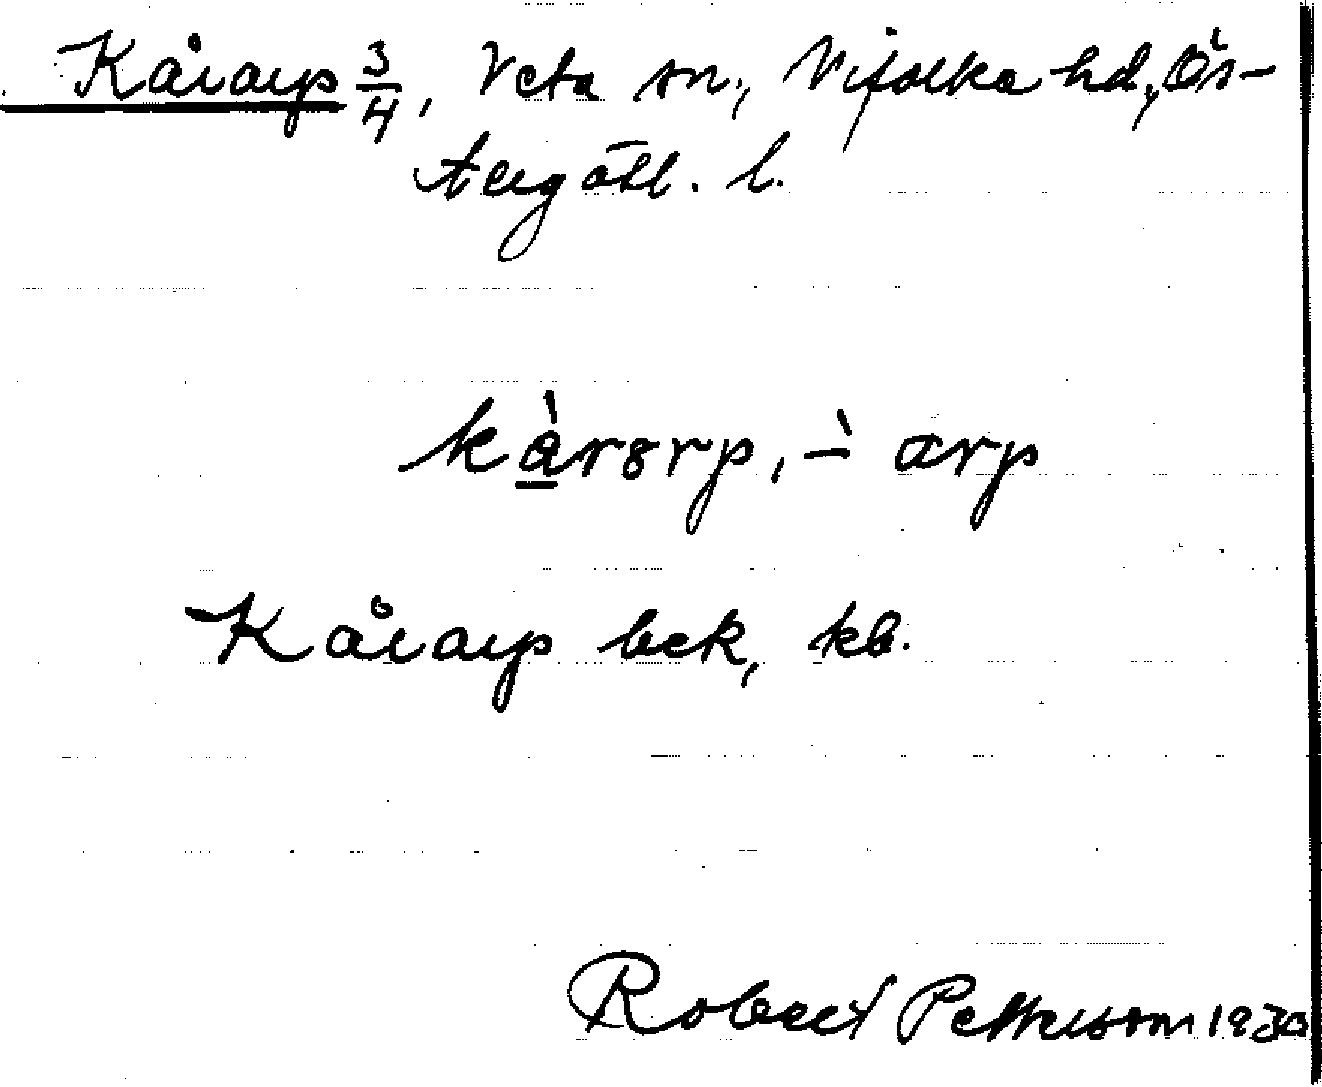 Kårarp 3/4, Veta sn., Vifolka hd., Ös-
tergötl. l.
kàrɞrp, -̀ arp
Kårarp bek, kb.
Robert Pettersson 1930